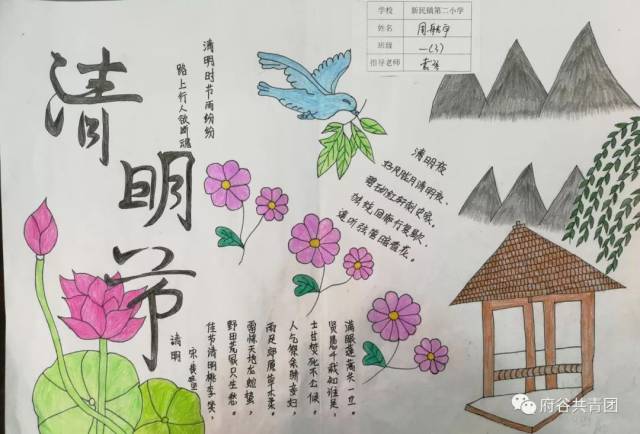 清明节
学校 新民镇第二小学
姓名
班级 一(3)
指导老师
清明时节雨纷纷
路上行人欲断魂
清明夜
好风胧月清明夜,
碧砌红轩刺史家.
独绕回廊行复歇,
遥听弦管暗看花.
清明
宋 黄庭坚
佳节清明桃李笑,
野田荒冢只生愁.
雷惊天地龙蛇蛰,
雨足郊原草木柔.
人乞祭余骄妾妇,
士甘焚死不公侯.
贤愚千载知谁是,
满眼蓬蒿共一丘.
府谷共青团